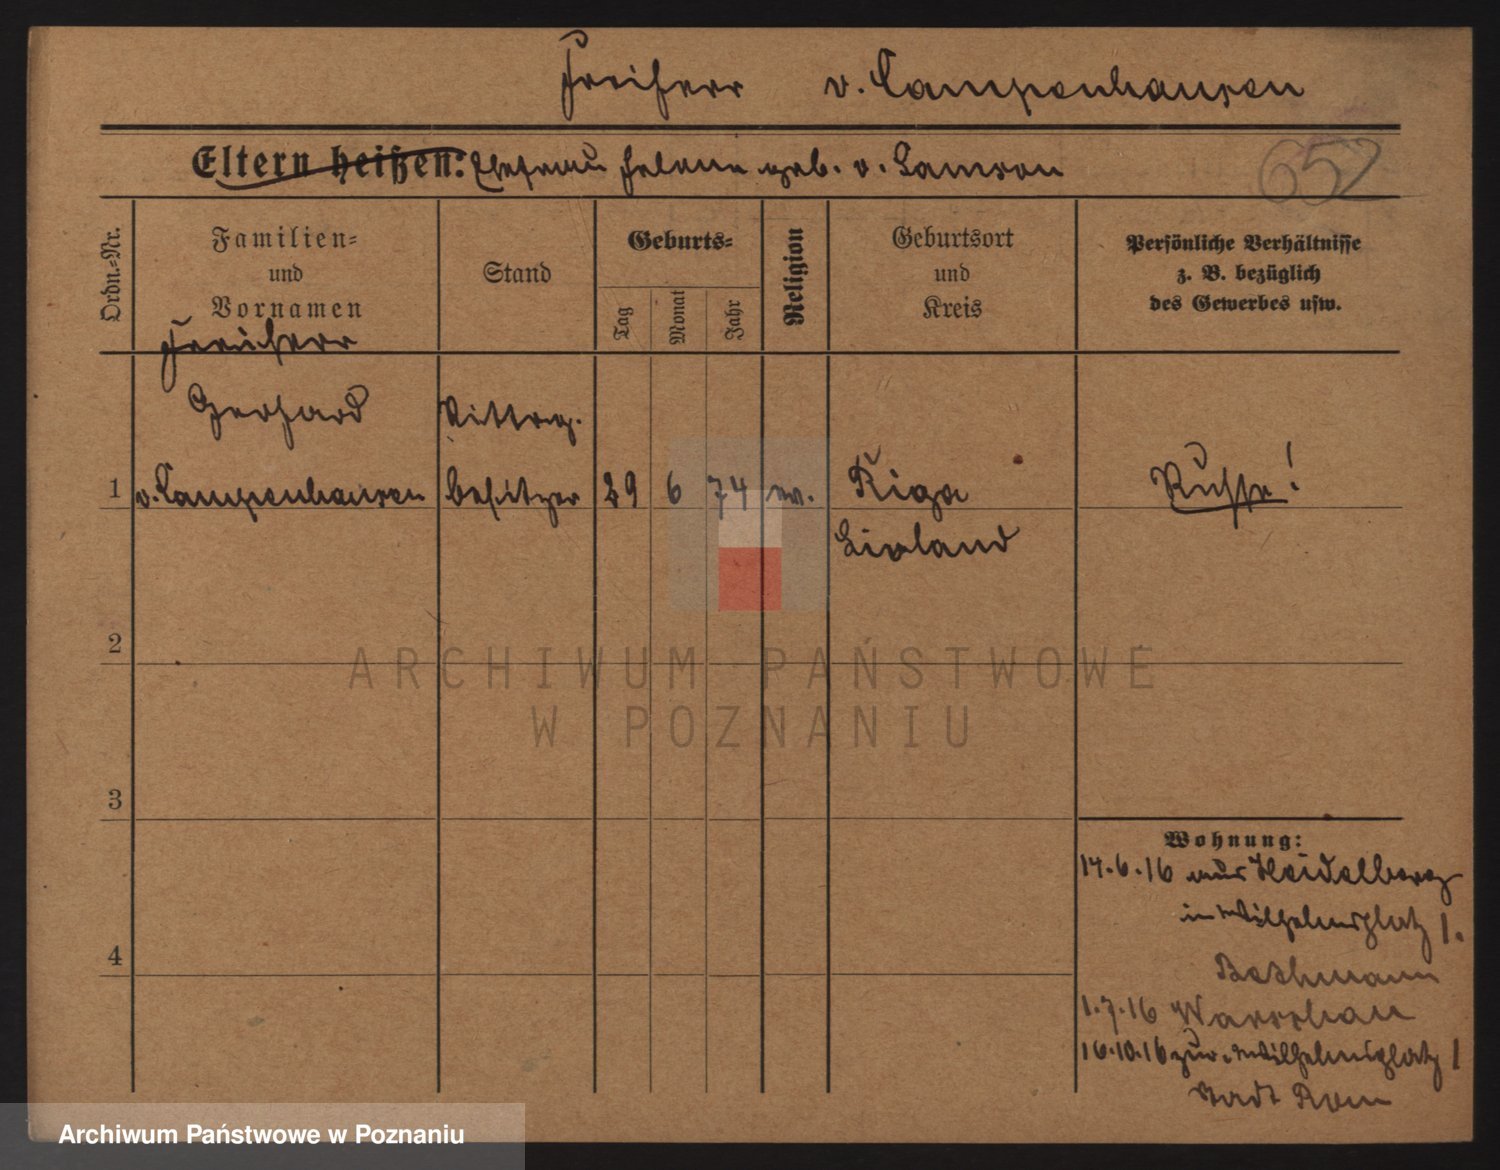 Freiherr v. Campenhausen
Eltern heißen: Ehefrau Helene geb. v. Samson
652
Ordn.-Nr.
Familien-
und
Vornamen
Stand
Geburts-
Tag
Monat
Jahr
Religion
Geburtsort
und
Kreis
Persönliche Verhältnisse
z. B. bezüglich
des Gewerbes usw.
Freiherr
Gerhard Rittrg.
1 v. Campenhausen besitzer 29 6 74 ev. Riga Russe!
Livland
2
3
4
Wohnung:
17.6.16 aus Heidelberg
in Wilhelmsplatz 1.
Bethmann
1.7.16 Warschau
16.10.16 zur. Wilhelmsplatz 1
Stadt Rom
ARCHIWUM PAŃSTWOWE
W POZNANIU
Archiwum Państwowe w Poznaniu